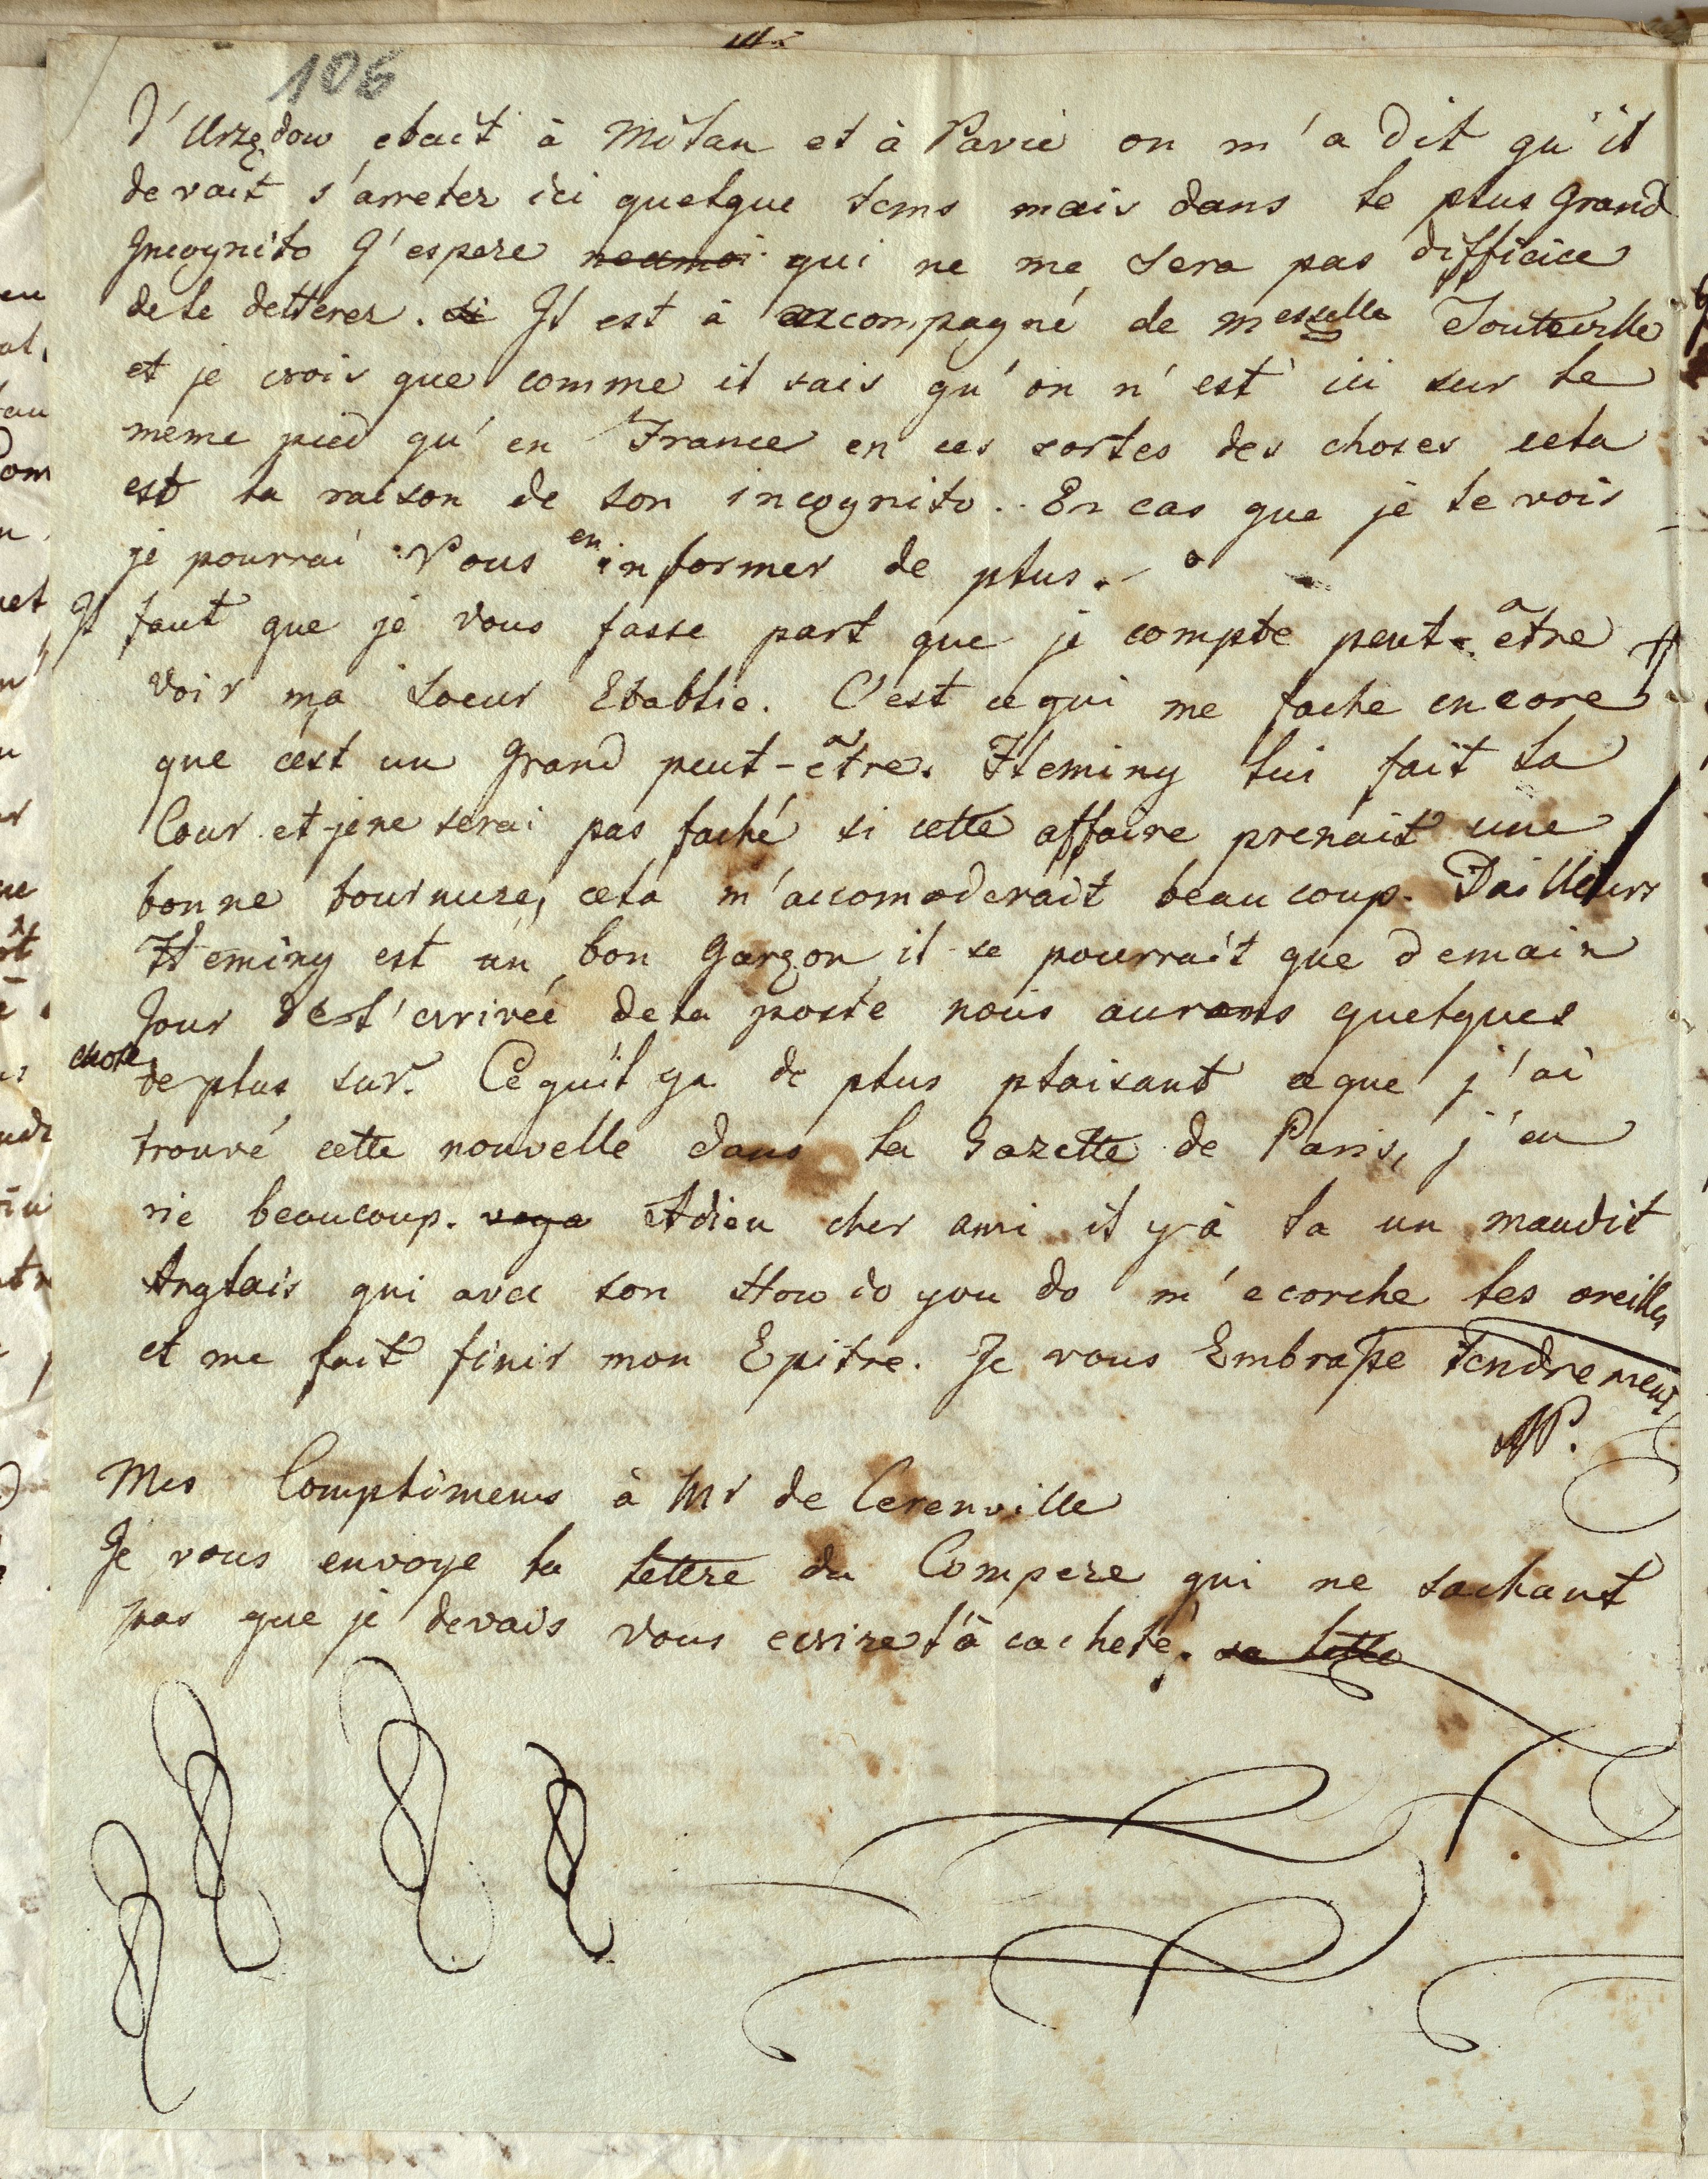 106
d'Urzędow etait à Milan et à Pavie on m'a dit qu'il
devait s'arreter ici quelque tems mais dans le plus Grand
Incognito J'espere neamoi qui ne me sera pas difficice
de le detterer. si Il est à accompagné de messelle Touteville
et je crois que comme il sais qu'on n'est ici sur le
meme pied qu'en France en ces sortes des choses cela
est la raison de son incognito. En cas que je le vois
je pourrai Vous en informer de plus.
Il faut que je vous fasse part que je compte peut-être
voir ma soeur Etablie. C'est ce qui me fache encore
que c'est un Grand peut-être. Fleming lui fait la
Cour et je ne serai pas faché si cette affaire prenait une
bonne tournure, cela m'accomoderait beaucoup. Dailleurs
Fleming est un bon Garçon il se pourrait que demain
Jour de l'arrivée de la poste nous aurons quelques
chose de plus sur. Ce qu'il ya de plus plaisant ce que j'ai
trouvé cette nouvelle dans la Gazette de Paris, j'en
rie beaucoup. Adieu cher ami il y à la un maudit
Anglais qui avec son How do you do m'ecorche les oreilles
et me fait finir mon Epitre. Je vous Embrasse tendrement
Mes Complimens à Mr de Cerenville
Je vous envoye la lettre du Compere qui ne sachant
pas que je devais vous ecrire l'à cacheté. sa lettre